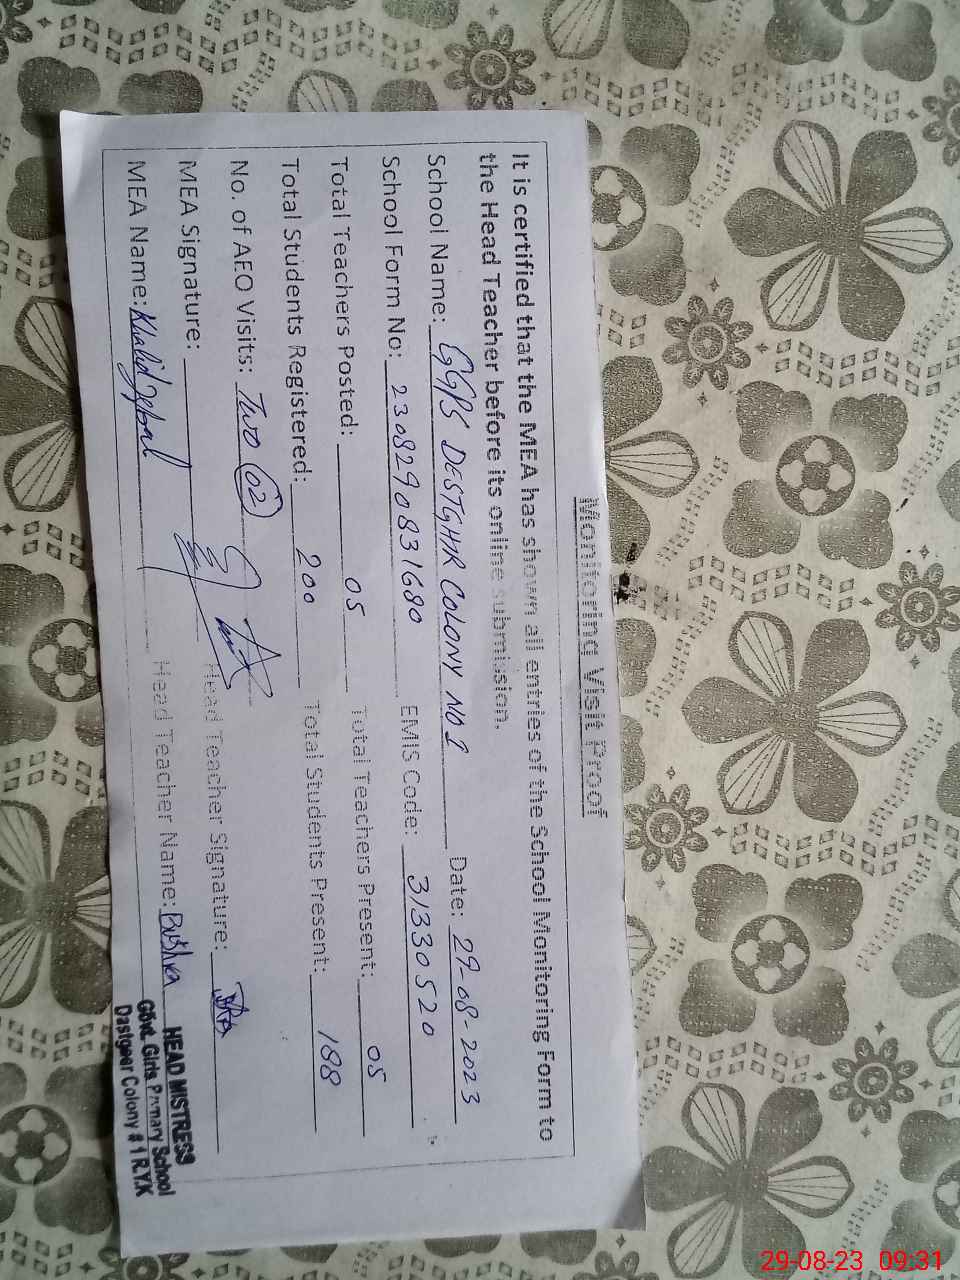 Monitoring Visit Proof
It is certified that the MEA has shown all entries of the School Monitoring Form to
the Head Teacher before its online submission.
School Name: GGPS DESTGHIR COLONY NO 1 Date: 29-08-2023
School Form No: 2308290831680 EMIS Code: 31330520
Total Teachers Posted: 05 Total Teachers Present: 05
Total Students Registered: 200 Total Students Present: 188
No. of AEO Visits: Two (02)
MEA Signature: Head Teacher Signature:
MEA Name: Khalid Iqbal Head Teacher Name: Bushra
HEAD MISTRESS
Govt. Girls Primary School
Dastgeer Colony # 1 R.Y.K
29-08-23 09:31